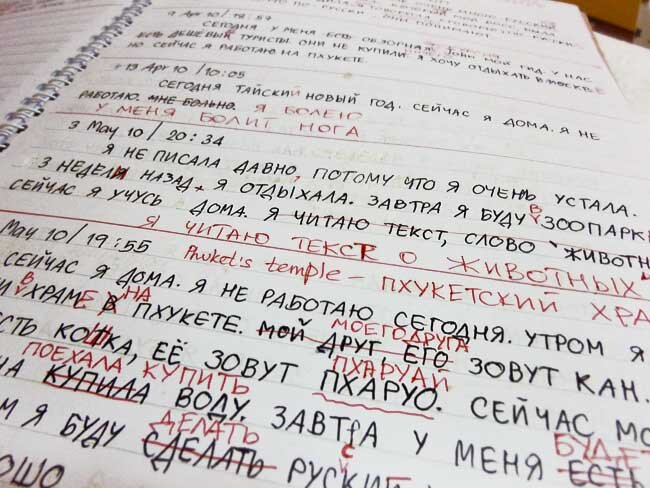 9 Apr 10 / 19:57
СЕГОДНЯ У МЕНЯ ЕСТЬ ОБЗОРНАЯ МОЙ ГИД. У НАС
ЕСТЬ ДЕШЁВЫЙ ТУРИСТЫ. ОНИ НЕ КУПИЛИ. Я ХОЧУ ОТДЫХАТЬ В МОСКВЕ
НО СЕЙЧАС Я РАБОТАЮ НА ПХУКЕТЕ.
13 Apr 10 / 10:05
СЕГОДНЯ ТАЙСКИЙ НОВЫЙ ГОД. СЕЙЧАС Я ДОМА. Я НЕ
РАБОТАЮ. МНЕ БОЛЬНО. Я БОЛЕЮ
У МЕНЯ БОЛИТ НОГА
3 May 10 / 20:34
Я НЕ ПИСАЛА ДАВНО, ПОТОМУ ЧТО Я ОЧЕНЬ УСТАЛА.
3 НЕДЕЛИ НАЗАД Я ОТДЫХАЛА. ЗАВТРА Я БУДУ В ЗООПАРК
СЕЙЧАС Я УЧУСЬ ДОМА. Я ЧИТАЮ ТЕКСТ, СЛОВО "ЖИВОТН
Я ЧИТАЮ ТЕКСТ О ЖИВОТНЫХ
May 10 / 19:55
Phuket's temple - ПХУКЕТСКИЙ ХРА
СЕЙЧАС Я ДОМА. Я НЕ РАБОТАЮ СЕГОДНЯ. УТРОМ Я
В ХРАМЕ В НА ПХУКЕТЕ. МОЙ ДРУГ ЕГО ЗОВУТ КАН.
МОЕГО ДРУГА
СТЬ КОШКА, ЕЁ ЗОВУТ ПХАРУО. СЕЙЧАС МО
ПХАРУАЙ
ПОЕХАЛА КУПИТЬ
НА КУПИЛА ВОДУ. ЗАВТРА У МЕНЯ ЕСТЬ
БУДЕТ
ДЕЛАТЬ
М Я БУДУ СДЕЛАТЬ РУСКИ
С
ОШО